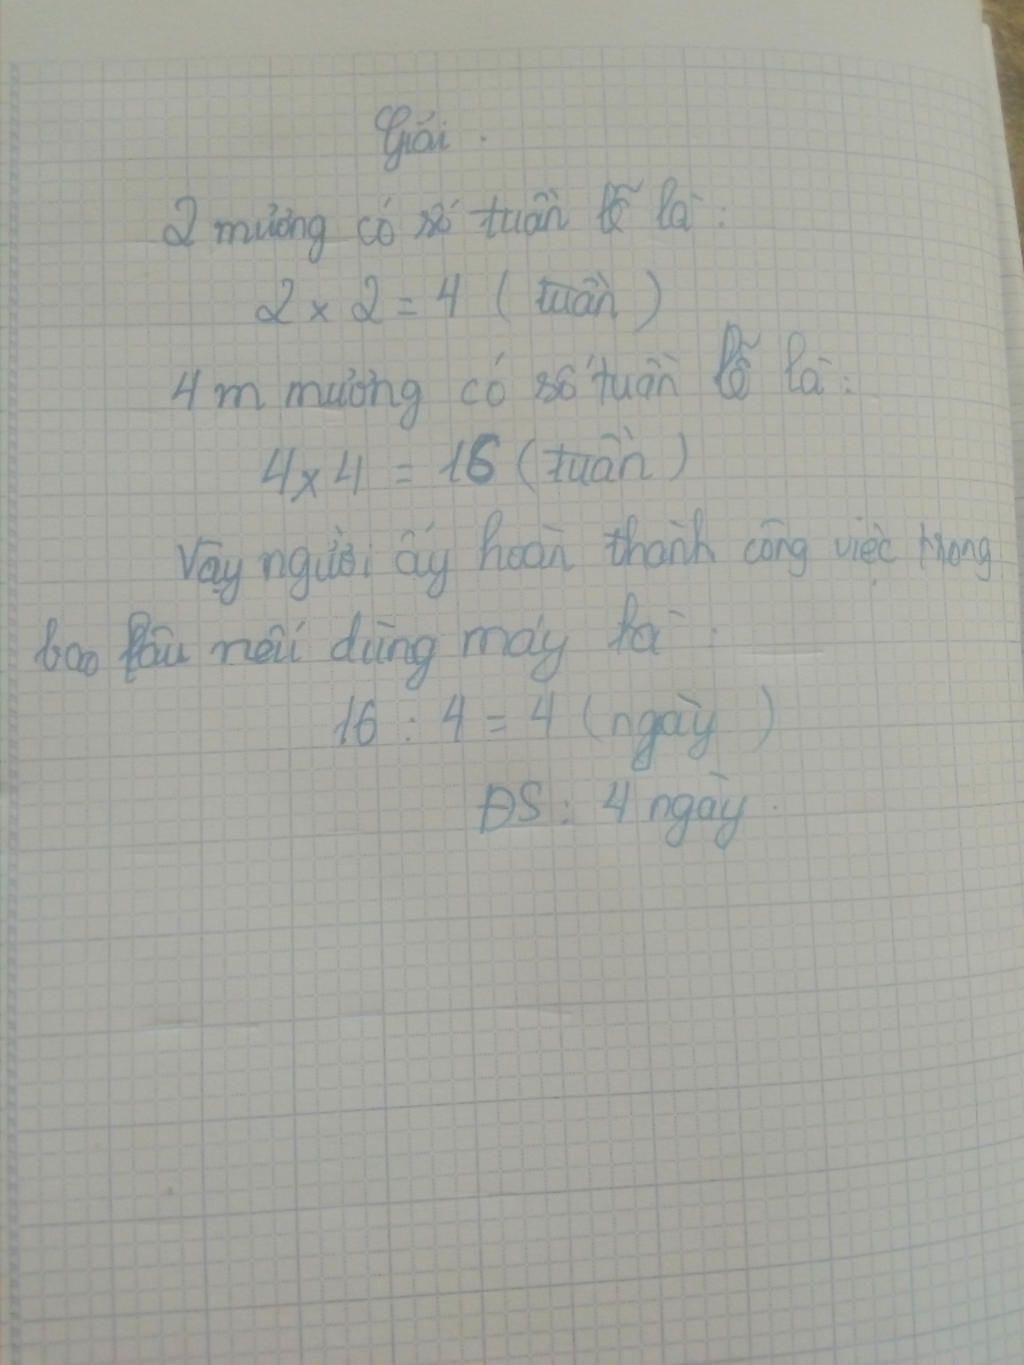 Giải.
2 mương có số tuần lễ là:
2 x 2 = 4 ( tuần )
4 m mương có số tuần lễ là:
4 x 4 = 16 ( tuần )
Vậy người ấy hoàn thành công việc trong
bao lâu nếu dùng máy là :
16 : 4 = 4 ( ngày )
ĐS : 4 ngày.